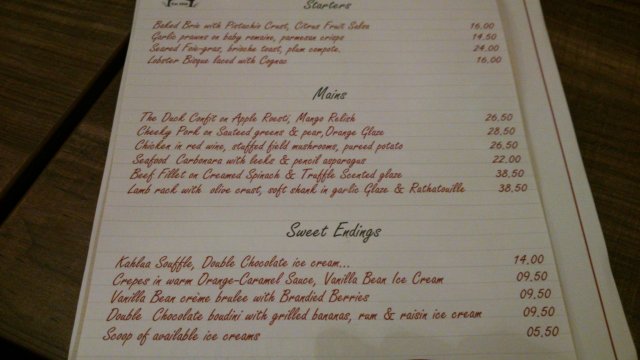 Starters
Baked Brie with Pistachio Crust, Citrus Fruit Salsa 16,00
Garlic prawns on baby romaine, parmesan crisps 14,50
Seared Foie-gras, brioche toast, plum compote. 24,00
Lobster Bisque laced with Cognac 16,00
Mains
The Duck Confit on Apple Roesti, Mango Relish 26,50
Cheeky Pork on Sauteed greens & pear,Orange Glaze 28,50
Chicken in red wine, stuffed field mushrooms, pureed potato 26,50
Seafood Carbonara with leeks & pencil asparagus 22.00
Beef Fillet on Creamed Spinach & Truffle Scented glaze 38,50
Lamb rack with olive crust, soft shank in garlic Glaze & Rathatouille 38,50
Sweet Endings
Kahlua Souffle, Double Chocolate ice cream... 14.00
Crepes in warm Orange-Caramel Sauce, Vanilla Bean Ice Cream 09.50
Vanilla Bean crème brulee with Brandied Berries 09.50
Double Chocolate boudini with grilled bananas, rum & raisin ice cream 09.50
Scoop of available ice creams 05.50